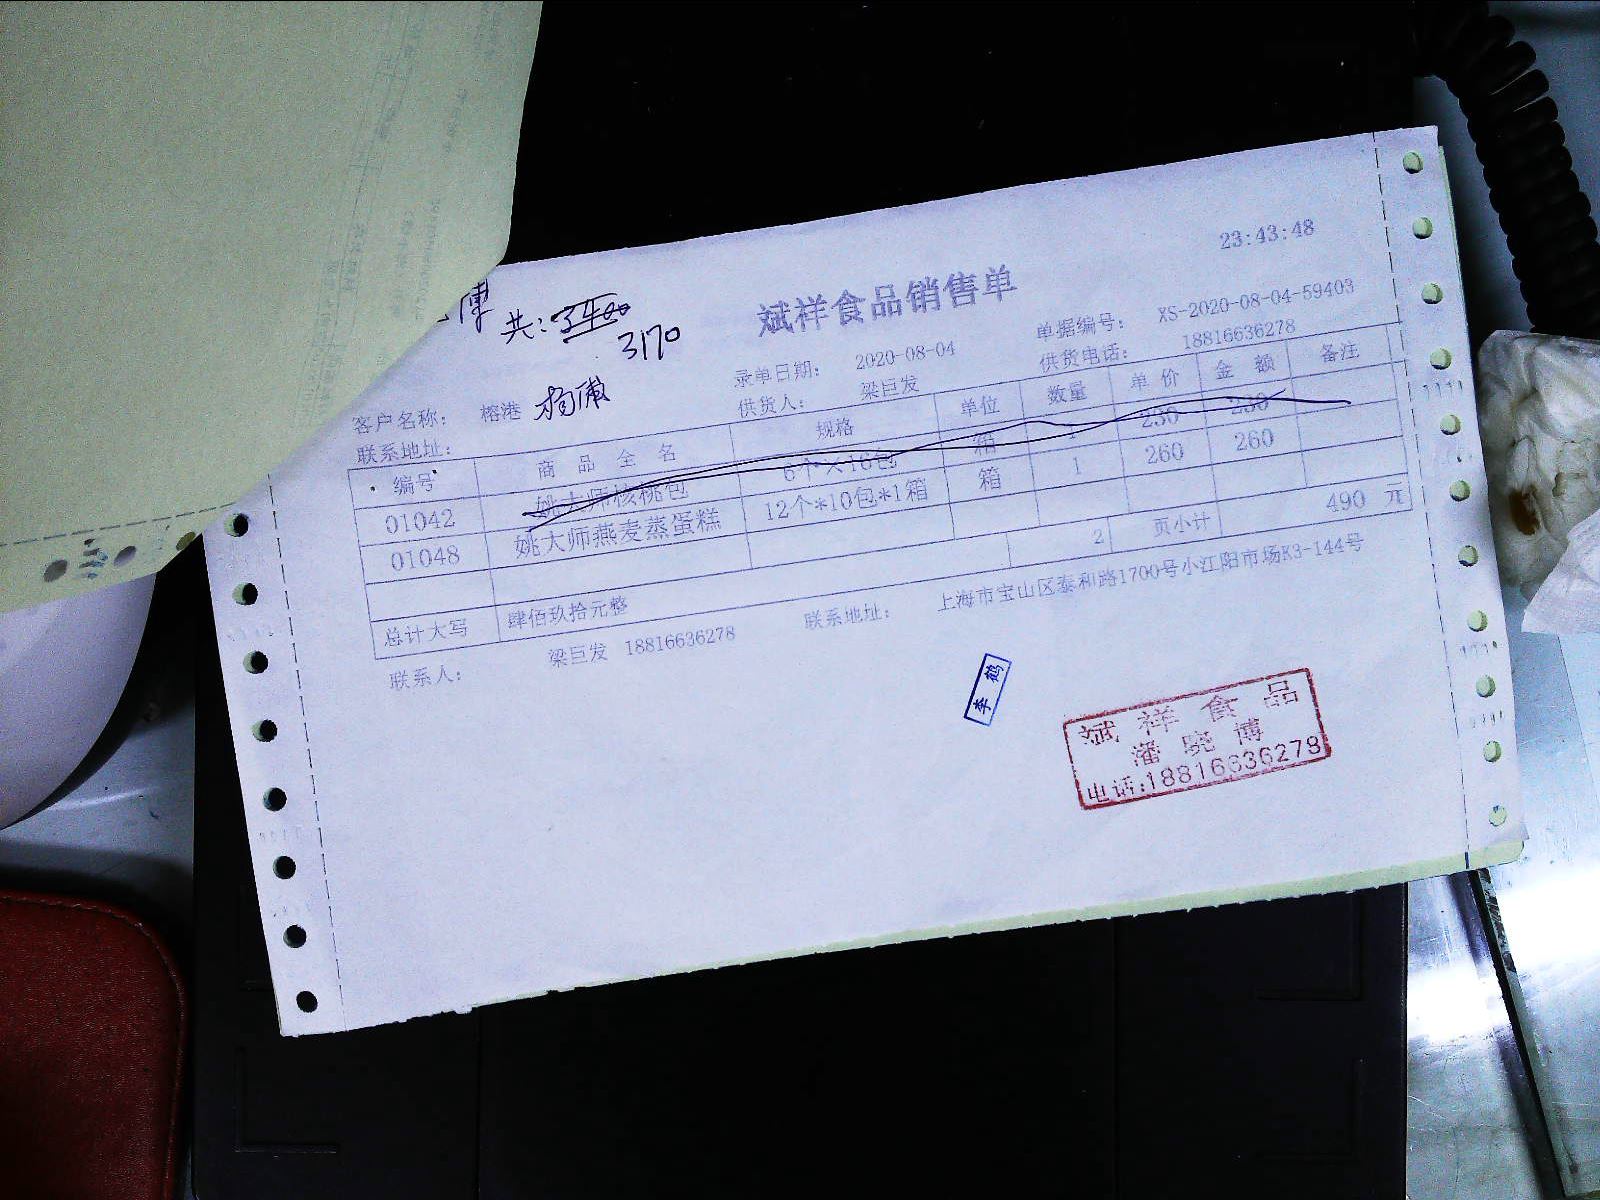 23:43:48
斌祥食品销售单
博 共:
3170
录单日期: 2020-08-04 单据编号: XS-2020-08-04-59403
客户名称: 榕港 供货人: 梁巨发 供货电话: 18816636278
联系地址:
编号 商品全名 规格 单位 数量 单价 金额 备注
01042 姚大师核桃包 6个*16包 箱 1 230 230
01048 姚大师燕麦蒸蛋糕 12个*10包*1箱 箱 1 260 260
2 页小计 490 元
总计大写 肆佰玖拾元整
联系人: 梁巨发 18816636278 联系地址: 上海市宝山区泰和路1700号小江阳市场K3-144号
李鹤
斌祥食品
潘晓博
电话:18816636278